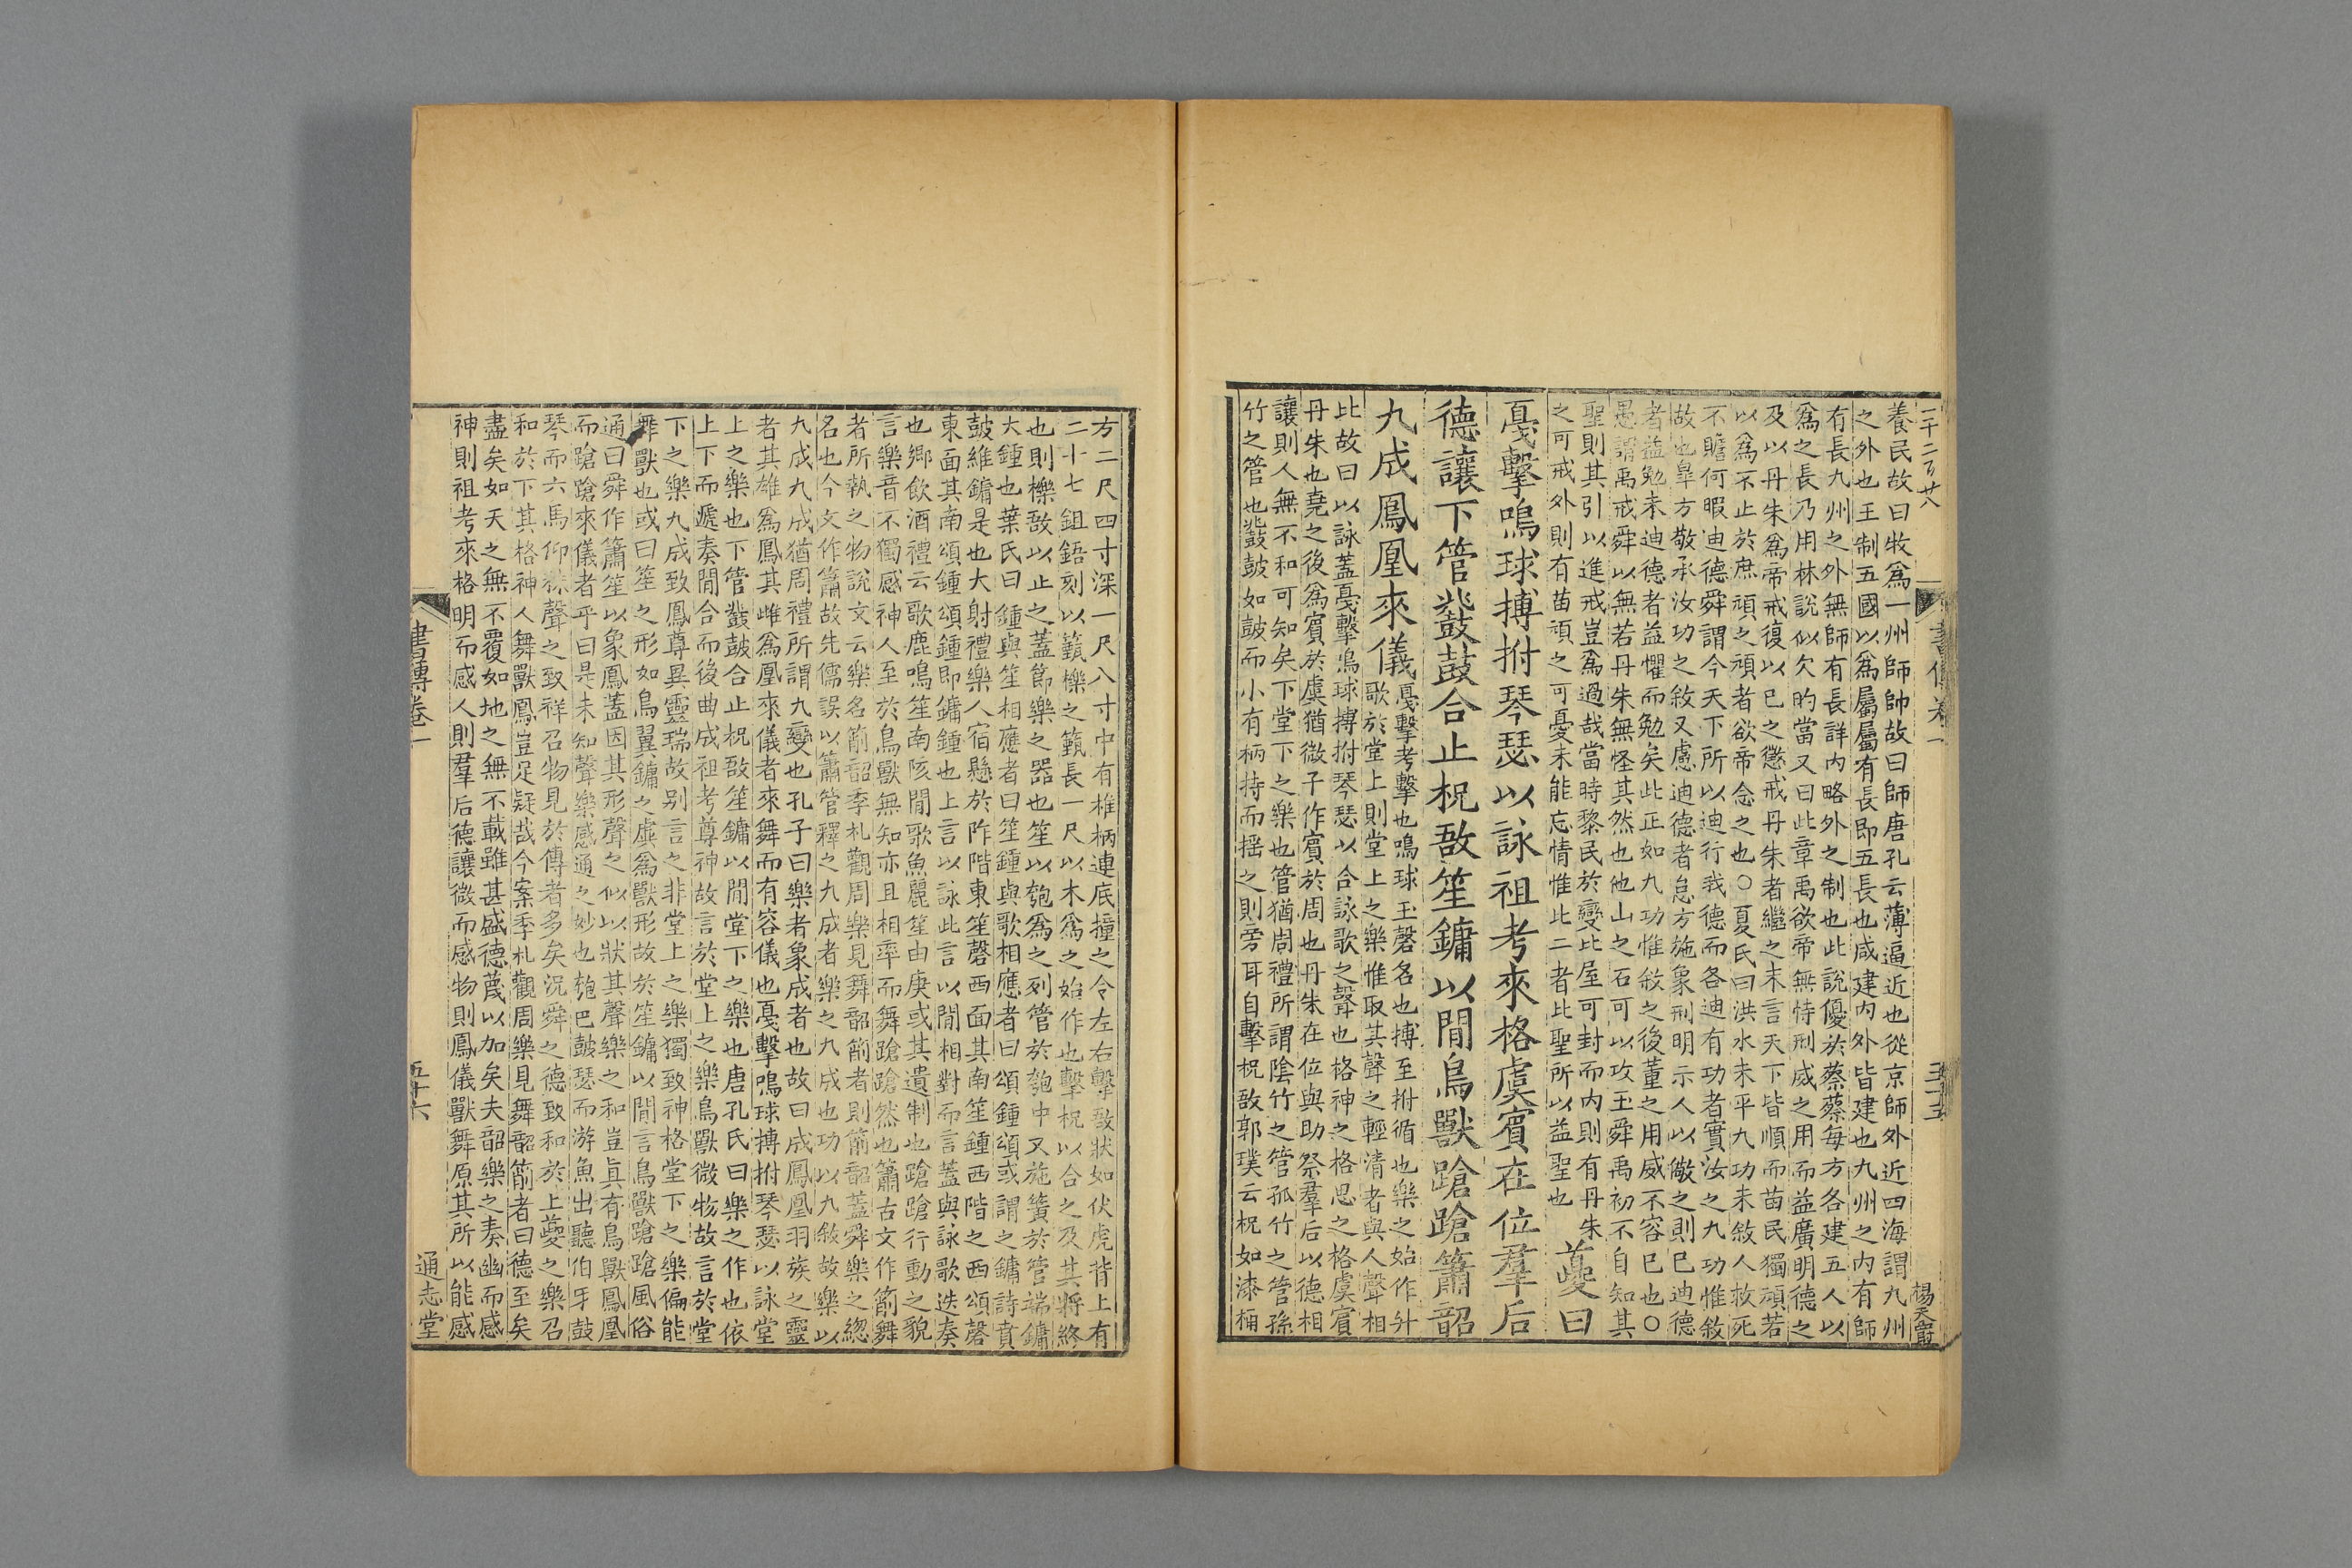 二千二百廿八
書傳卷一
五十五
楊天爵
養民故曰牧爲一州師帥故曰師唐孔云薄逼近也從京師外近四海謂九州
之外也王制五國以爲屬屬有長即五長也咸建内外皆建也九州之内有師
有長九州之外無師有長詳内略外之制也此說優於蔡蔡每方各建五人以
爲之長乃用林說似欠的當又曰此章禹欲帝無恃刑威之用而益廣明德之
及以丹朱爲帝戒復以已之懲戒丹朱者繼之末言天下皆順而苗民獨頑若
以爲不止於庶頑之頑者欲帝念之也○夏氏曰洪水未平九功未敘人救死
不贍何暇迪德舜謂今天下所以迪行我德而各迪有功者實汝之九功惟敘
故也皐方敬承汝功之敘又慮迪德者怠方施象刑明示人以儆之則已迪德
者益勉未迪德者益懼而勉矣此正如九功惟敘之後董之用威不容已也○
愚謂禹戒舜以無若丹朱無怪其然也他山之石可以攻玉舜禹初不自知其
聖則其引以進戒豈爲過哉當時黎民於變比屋可封而内則有丹朱
之可戒外則有苗頑之可憂未能忘情惟此二者比聖所以益聖也 夔曰
戞擊鳴球搏拊琴瑟以詠祖考來格虞賓在位羣后
德讓下管鼗鼓合止柷敔笙鏞以間鳥獸蹌蹌簫韶
九成鳳凰來儀 戞擊考擊也鳴球玉磬名也搏至拊循也樂之始作升
歌於堂上則堂上之樂惟取其聲之輕清者與人聲相
比故曰以詠蓋戞擊鳴球搏拊琴瑟以合詠歌之聲也格神之格思之格虞賓
丹朱也堯之後爲賓於虞猶微子作賓於周也丹朱在位與助祭羣后以德相
讓則人無不和可知矣下堂下之樂也管猶周禮所謂陰竹之管孤竹之管孫
竹之管也鼗鼓如鼓而小有柄持而摇之則旁耳自擊柷敔郭璞云柷如漆桶
方二尺四寸深一尺八寸中有椎柄連底撞之令左右擊敔狀如伏虎背上有
二十七鉏鋙刻以籈櫟之籈長一尺以木爲之始作也擊柷以合之及其將終
也則櫟敔以止之蓋節樂之器也笙以匏爲之列管於匏中又施簧於管端鏞
大鍾也葉氏曰鍾與笙相應者曰笙鍾與歌相應者曰頌鍾頌或謂之鏞詩賁
鼓維鏞是也大射禮樂人宿懸於阼階東笙磬西面其南笙鍾西階之西頌磬
東面其南頌鍾頌鍾即鏞鍾也上言以詠此言以間相對而言蓋與詠歌迭奏
也鄉飲酒禮云歌鹿鳴笙南陔間歌魚麗笙由庚或其遺制也蹌蹌行動之貌
言樂音不獨感神人至於鳥獸無知亦且相率而舞蹌蹌然也簫古文作箾舞
者所執之物說文云樂名箾韶季札觀周樂見舞韶箾者則箾韶蓋舜樂之總
名也今文作簫故先儒誤以簫管釋之九成者樂之九成也功以九敘故樂以
九成九成猶周禮所謂九變也孔子曰樂者象成者也故曰成鳳凰羽族之靈
者其雄爲鳳其雌爲凰來儀者來舞而有容儀也戞擊鳴球搏拊琴瑟以詠堂
上之樂也下管鼗鼓合止柷敔笙鏞以間堂下之樂也唐孔氏曰樂之作也依
上下而遞奏間合而後曲成祖考尊神故言於堂上之樂鳥獸微物故言於堂
下之樂九成致鳳尊異靈瑞故别言之非堂上之樂獨致神格堂下之樂偏能
舞獸也或曰笙之形如鳥翼鏞之虡爲獸形故於笙鏞以間言鳥獸蹌蹌風俗
通曰舜作簫笙以象鳳蓋因其形聲之似以狀其聲樂之和豈眞有鳥獸鳳凰
而蹌蹌來儀者乎曰是未知聲樂感通之妙也匏巴鼓瑟而游魚出聽伯牙鼓
琴而六馬仰秣聲之致祥召物見於傳者多矣況舜之德致和於上夔之樂召
和於下其格神人舞獸鳳豈足疑哉今案季札觀周樂見舞韶箾者曰德至矣
盡矣如天之無不覆如地之無不載雖甚盛德蔑以加矣夫韶樂之奏幽而感
神則祖考來格明而感人則羣后德讓微而感物則鳳儀獸舞原其所以能感
書傳卷一
五十六
通志堂